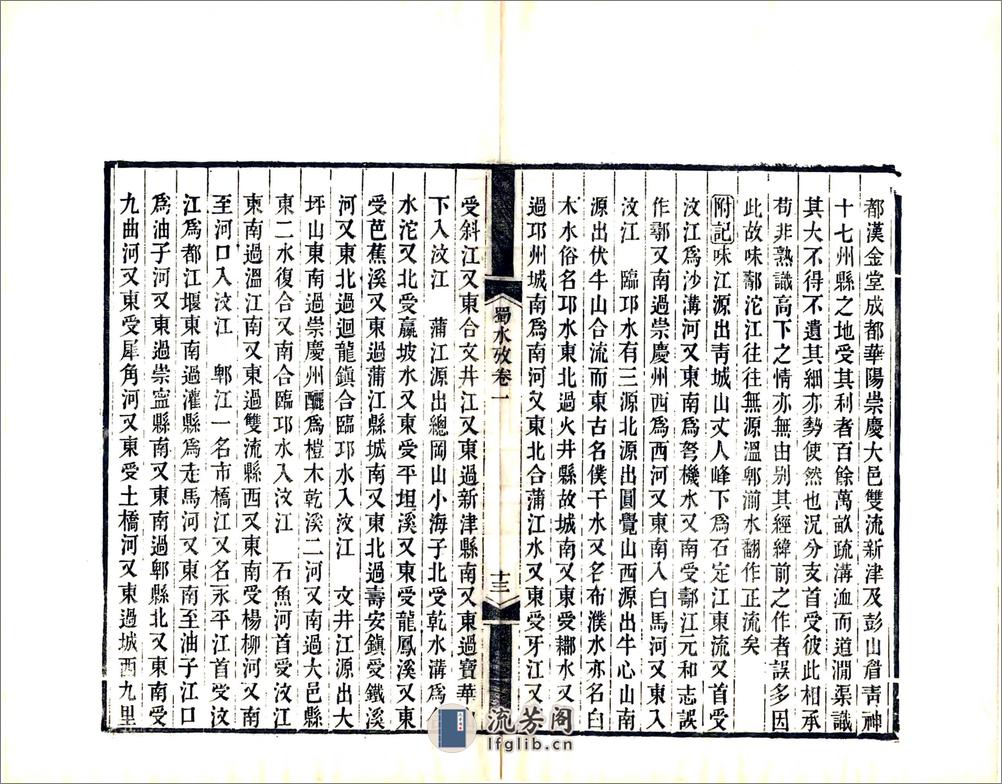 都漢金堂成都華陽崇慶大邑雙流新津及彭山眉青神
十七州縣之地受其利者百餘萬畝疏溝洫而道澗渠識
其大不得不遺其細亦勢使然也況分支首受彼此相承
苟非熟識高下之情亦無由別其經緯前之作者誤多因
此故味鄯沱江往往無源溫郫湔水翻作正流矣
附記味江源出青城山丈人峰下爲石定江東流又首受
汶江爲沙溝河又東南爲弩機水又南受鄯江元和志誤
作鄠又南過崇慶州西爲西河又東南入白馬河又東入
汶江 臨邛水有三源北源出圓覺山西源出牛心山南
源出伏牛山合流而東古名僕干水又名布濮水亦名臼
木水俗名邛水東北過火井縣故城南又東受䣕水又東
過邛州城南爲南河又東北合蒲江水又東受牙江又東
蜀水攷卷一
十三
受斜江又東合文井江又東過新津縣南又東過寶華
下入汶江 蒲江源出總岡山小海子北受乾水溝爲
水沱又北受羸坡水又東受平坦溪又東受龍鳳溪又東
受芭蕉溪又東過蒲江縣城南又東北過壽安鎮受鐵溪
河又東北過迴龍鎮合臨邛水入汶江 文井江源出大
坪山東南過崇慶州釃爲榿木乾溪二河又南過大邑縣
東二水復合又南合臨邛水入汶江 石魚河首受汶江
東南過溫江南又東過雙流縣西又東南受楊柳河又南
至河口入汶江 郫江一名市橋江又名永平江首受汶
江爲都江堰東南過灌縣爲走馬河又東南至油子江口
爲油子河又東過崇寧縣南又東南過郫縣北又東南受
九曲河又東受犀角河又東受土橋河又東過城西九里
流芳閣
lfglib.cn